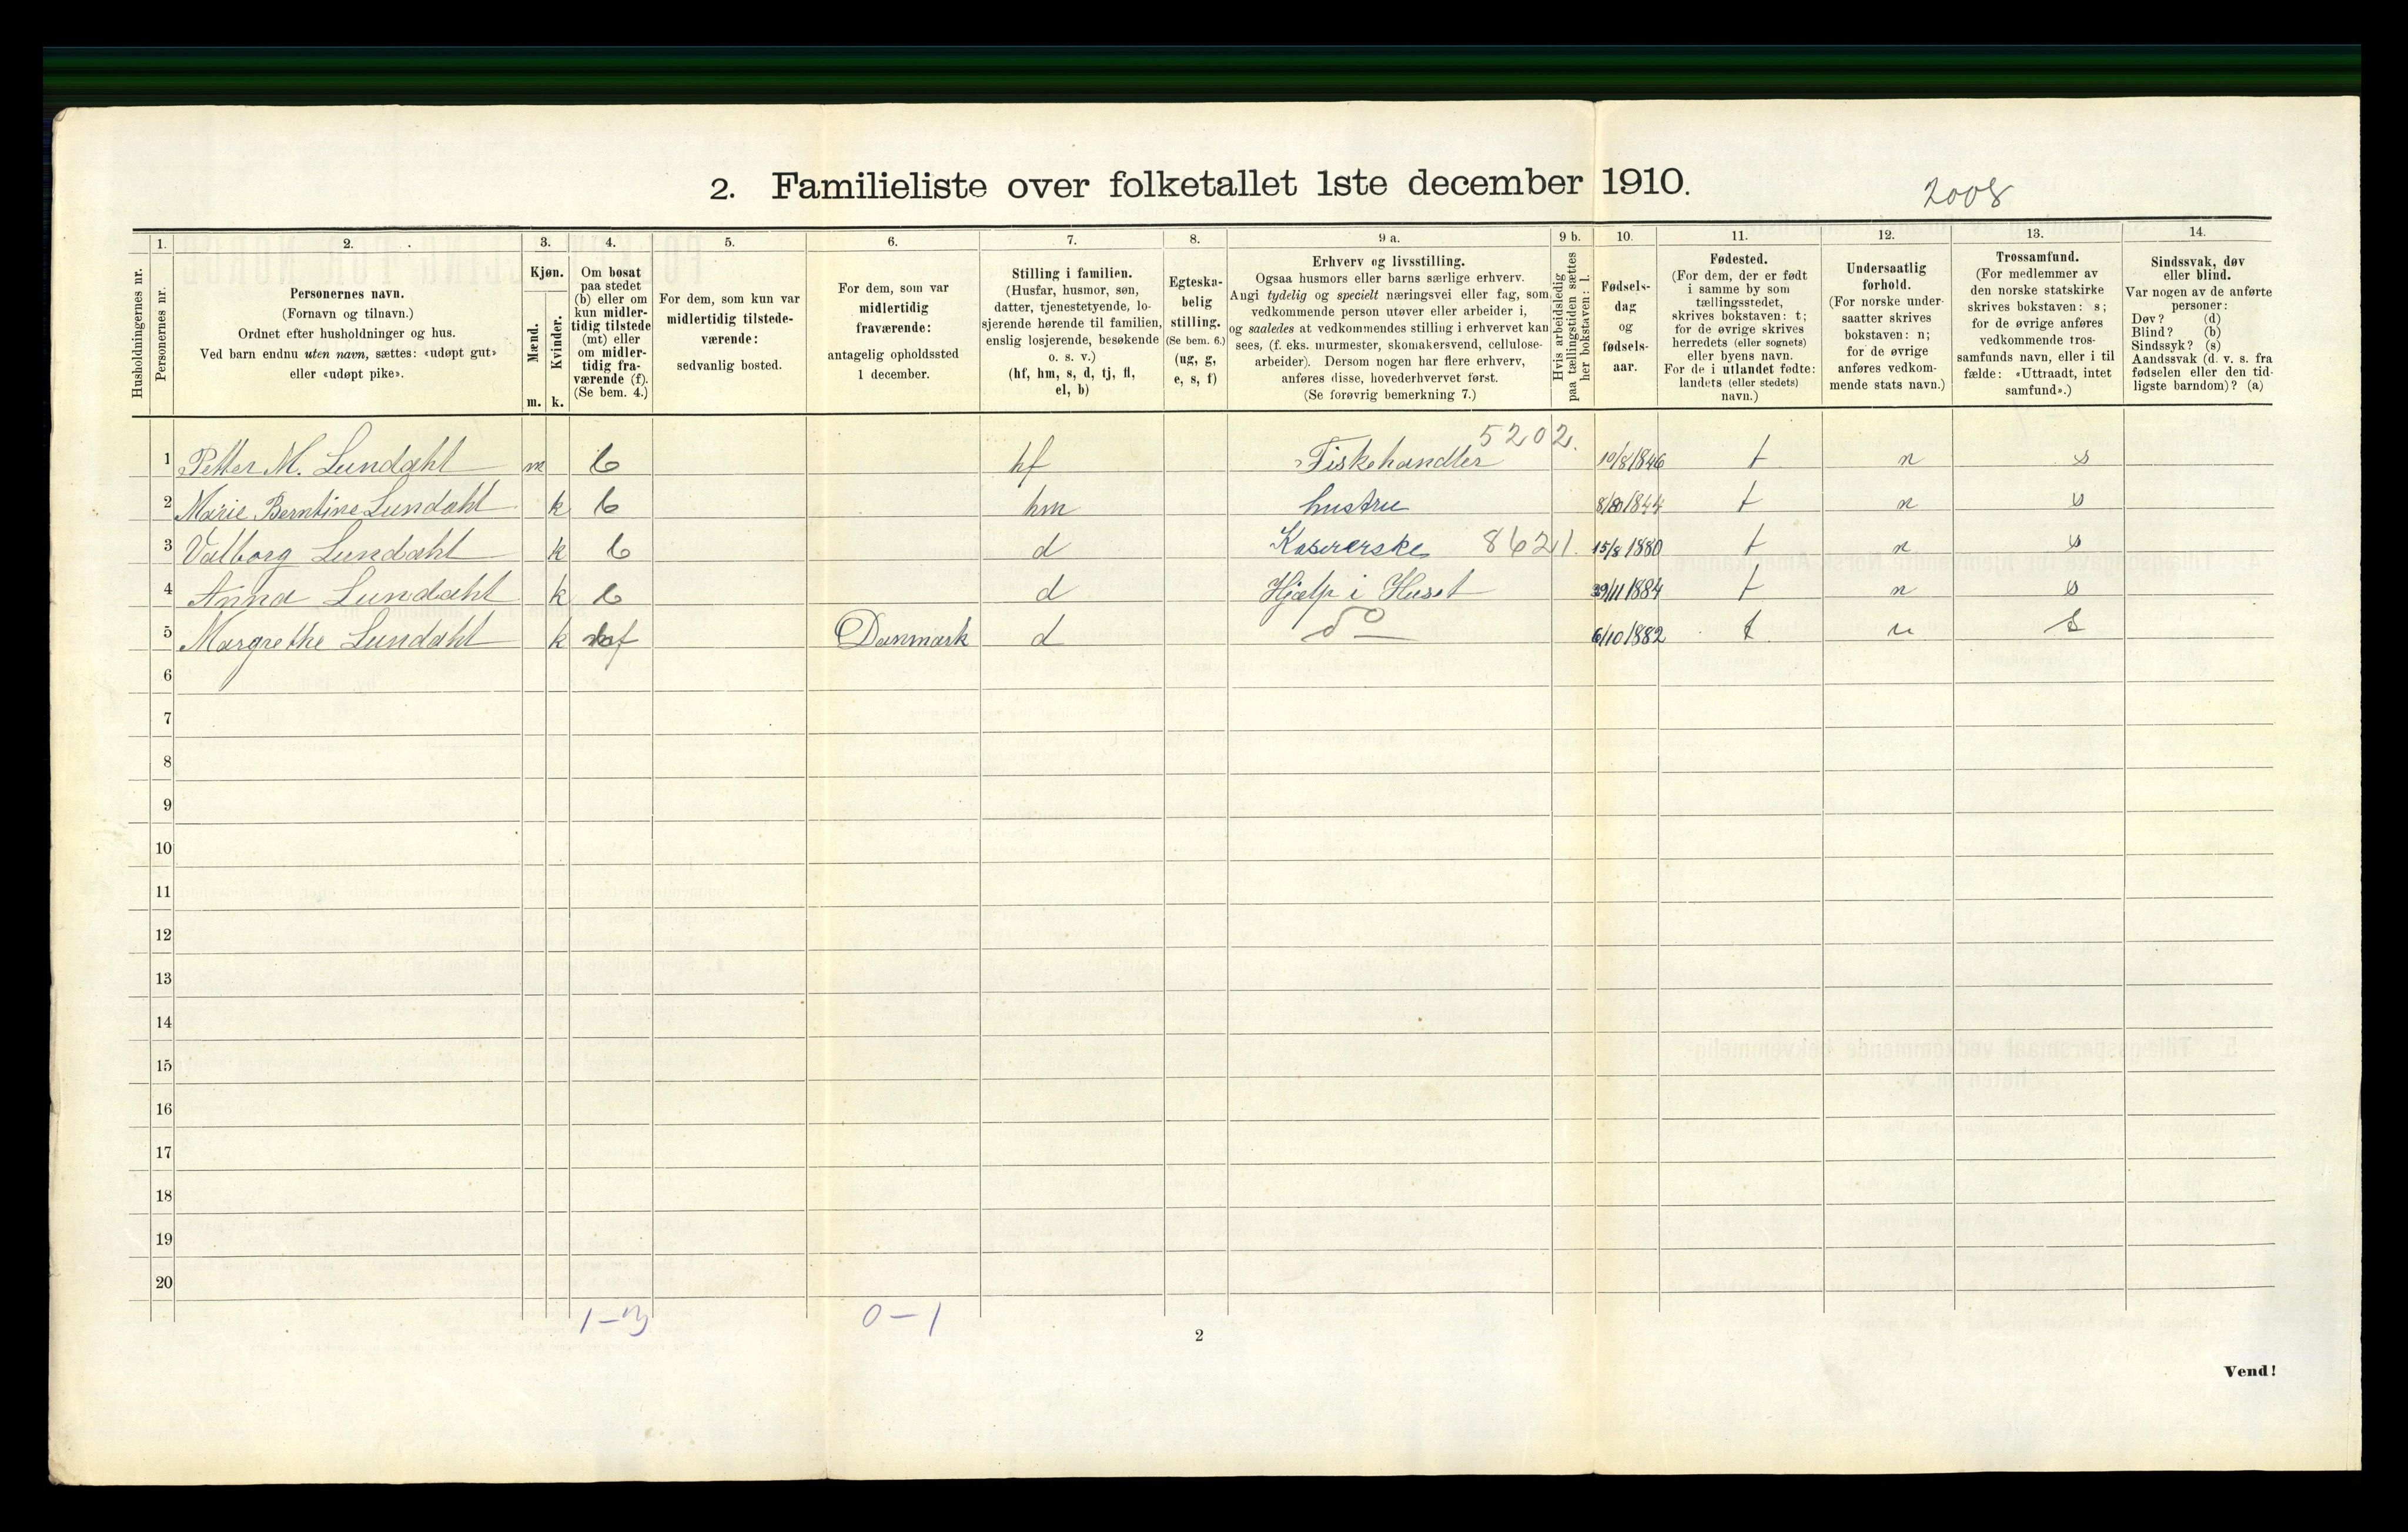 2. Familieliste over folketallet 1ste december 1910.
2008
1. 2. 3. 4. 5. 6. 7. 8. 9 a. 9 b. 10. 11. 12. 13. 14.
Husholdningernes nr.
Personernes nr.
Personernes navn.
(Fornavn og tilnavn.)
Ordnet efter husholdninger og hus.
Ved barn endnu uten navn, sættes: «udøpt gut»
eller «udøpt pike».
Kjøn.
Mænd.
Kvinder.
m. k.
Om bosat
paa stedet
(b) eller om
kun midler-
tidig tilstede
(mt) eller
om midler-
tidig fra-
værende (f).
(Se bem. 4.)
For dem, som kun var
midlertidig tilstede-
værende:
sedvanlig bosted.
For dem, som var
midlertidig
fraværende:
antagelig opholdssted
1 december.
Stilling i familien.
(Husfar, husmor, søn,
datter, tjenestetyende, lo-
sjerende hørende til familien,
enslig losjerende, besøkende
o. s. v.)
(hf, hm, s, d, tj, fl,
el, b)
Egteska-
belig
stilling.
(Se bem. 6.)
(ug, g,
e, s, f)
Erhverv og livsstilling.
Ogsaa husmors eller barns særlige erhverv.
Angi tydelig og specielt næringsvei eller fag, som
vedkommende person utøver eller arbeider i,
og saaledes at vedkommendes stilling i erhvervet kan
sees, (f. eks. murmester, skomakersvend, cellulose-
arbeider). Dersom nogen har flere erhverv,
anføres disse, hovederhvervet først.
(Se forøvrig bemerkning 7.)
Hvis arbeidsledig
paa tællingstiden sættes
her bokstaven: l.
Fødsels-
dag
og
fødsels-
aar.
Fødested.
(For dem, der er født
i samme by som
tællingsstedet,
skrives bokstaven: t;
for de øvrige skrives
herredets (eller sognets)
eller byens navn.
For de i utlandet fødte:
landets (eller stedets)
navn.)
Undersaatlig
forhold.
(For norske under-
saatter skrives
bokstaven: n;
for de øvrige
anføres vedkom-
mende stats navn.)
Trossamfund.
(For medlemmer av
den norske statskirke
skrives bokstaven: s;
for de øvrige anføres
vedkommende tros-
samfunds navn, eller i til
fælde: «Uttraadt, intet
samfund».)
Sindssvak, døv
eller blind.
Var nogen av de anførte
personer:
Døv? (d)
Blind? (b)
Sindssyk? (s)
Aandssvak (d. v. s. fra
fødselen eller den tid-
ligste barndom)? (a)
5202.
1 Petter M. Lundahl m b hf Fiskehandler 10/8 1846 t n s
2 Marie Berntine Lundahl k b hm hustru 1844 t n s
3 Valborg Lundahl k b d Kasererske 8621. 15/8 1880 t n s
4 Anna Lundahl k b d Hjælp i Huset 29/11 1884 t n s
5 Margrethe Lundahl k f Danmark d do 6/10 1882 t n s
6
7
8
9
10
11
12
13
14
15
16
17
18
19
20
1-3 0-1
2
Vend!